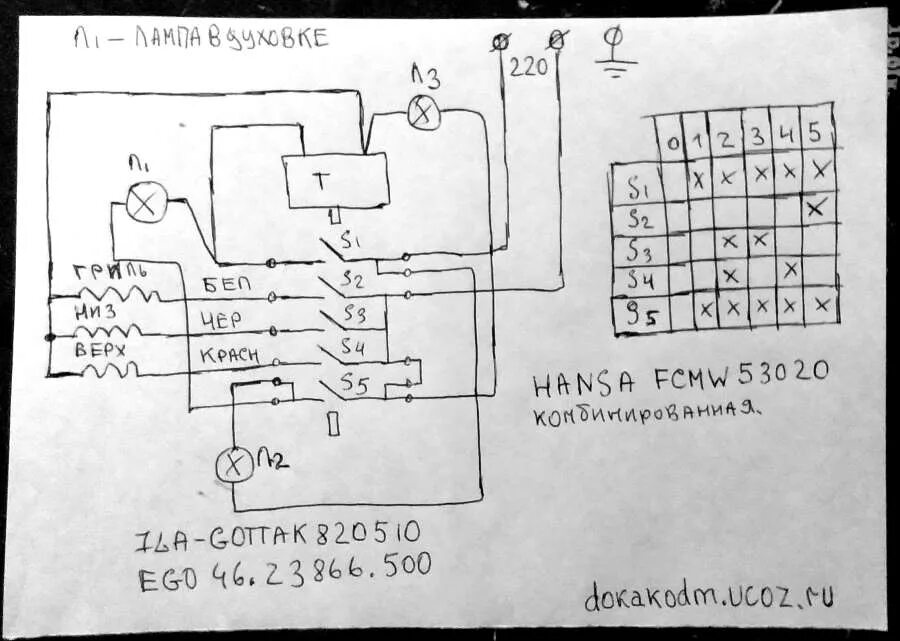 Л1 - ЛАМПА В ДУХОВКЕ
Л3
220
Л1
Т
S1
ГРИЛЬ
БЕЛ
S2
НИЗ
ЧЕР
S3
ВЕРХ
КРАСН
S4
S5
Л2
0 1 2 3 4 5
S1 X X X X X
S2 X
S3 X X
S4 X X
S5 X X X X X
HANSA FCMW 53020
КОМБИНИРОВАННАЯ.
ILA-GOTTAK 820510
EGO 46.23866.500
dokakodm.ucoz.ru